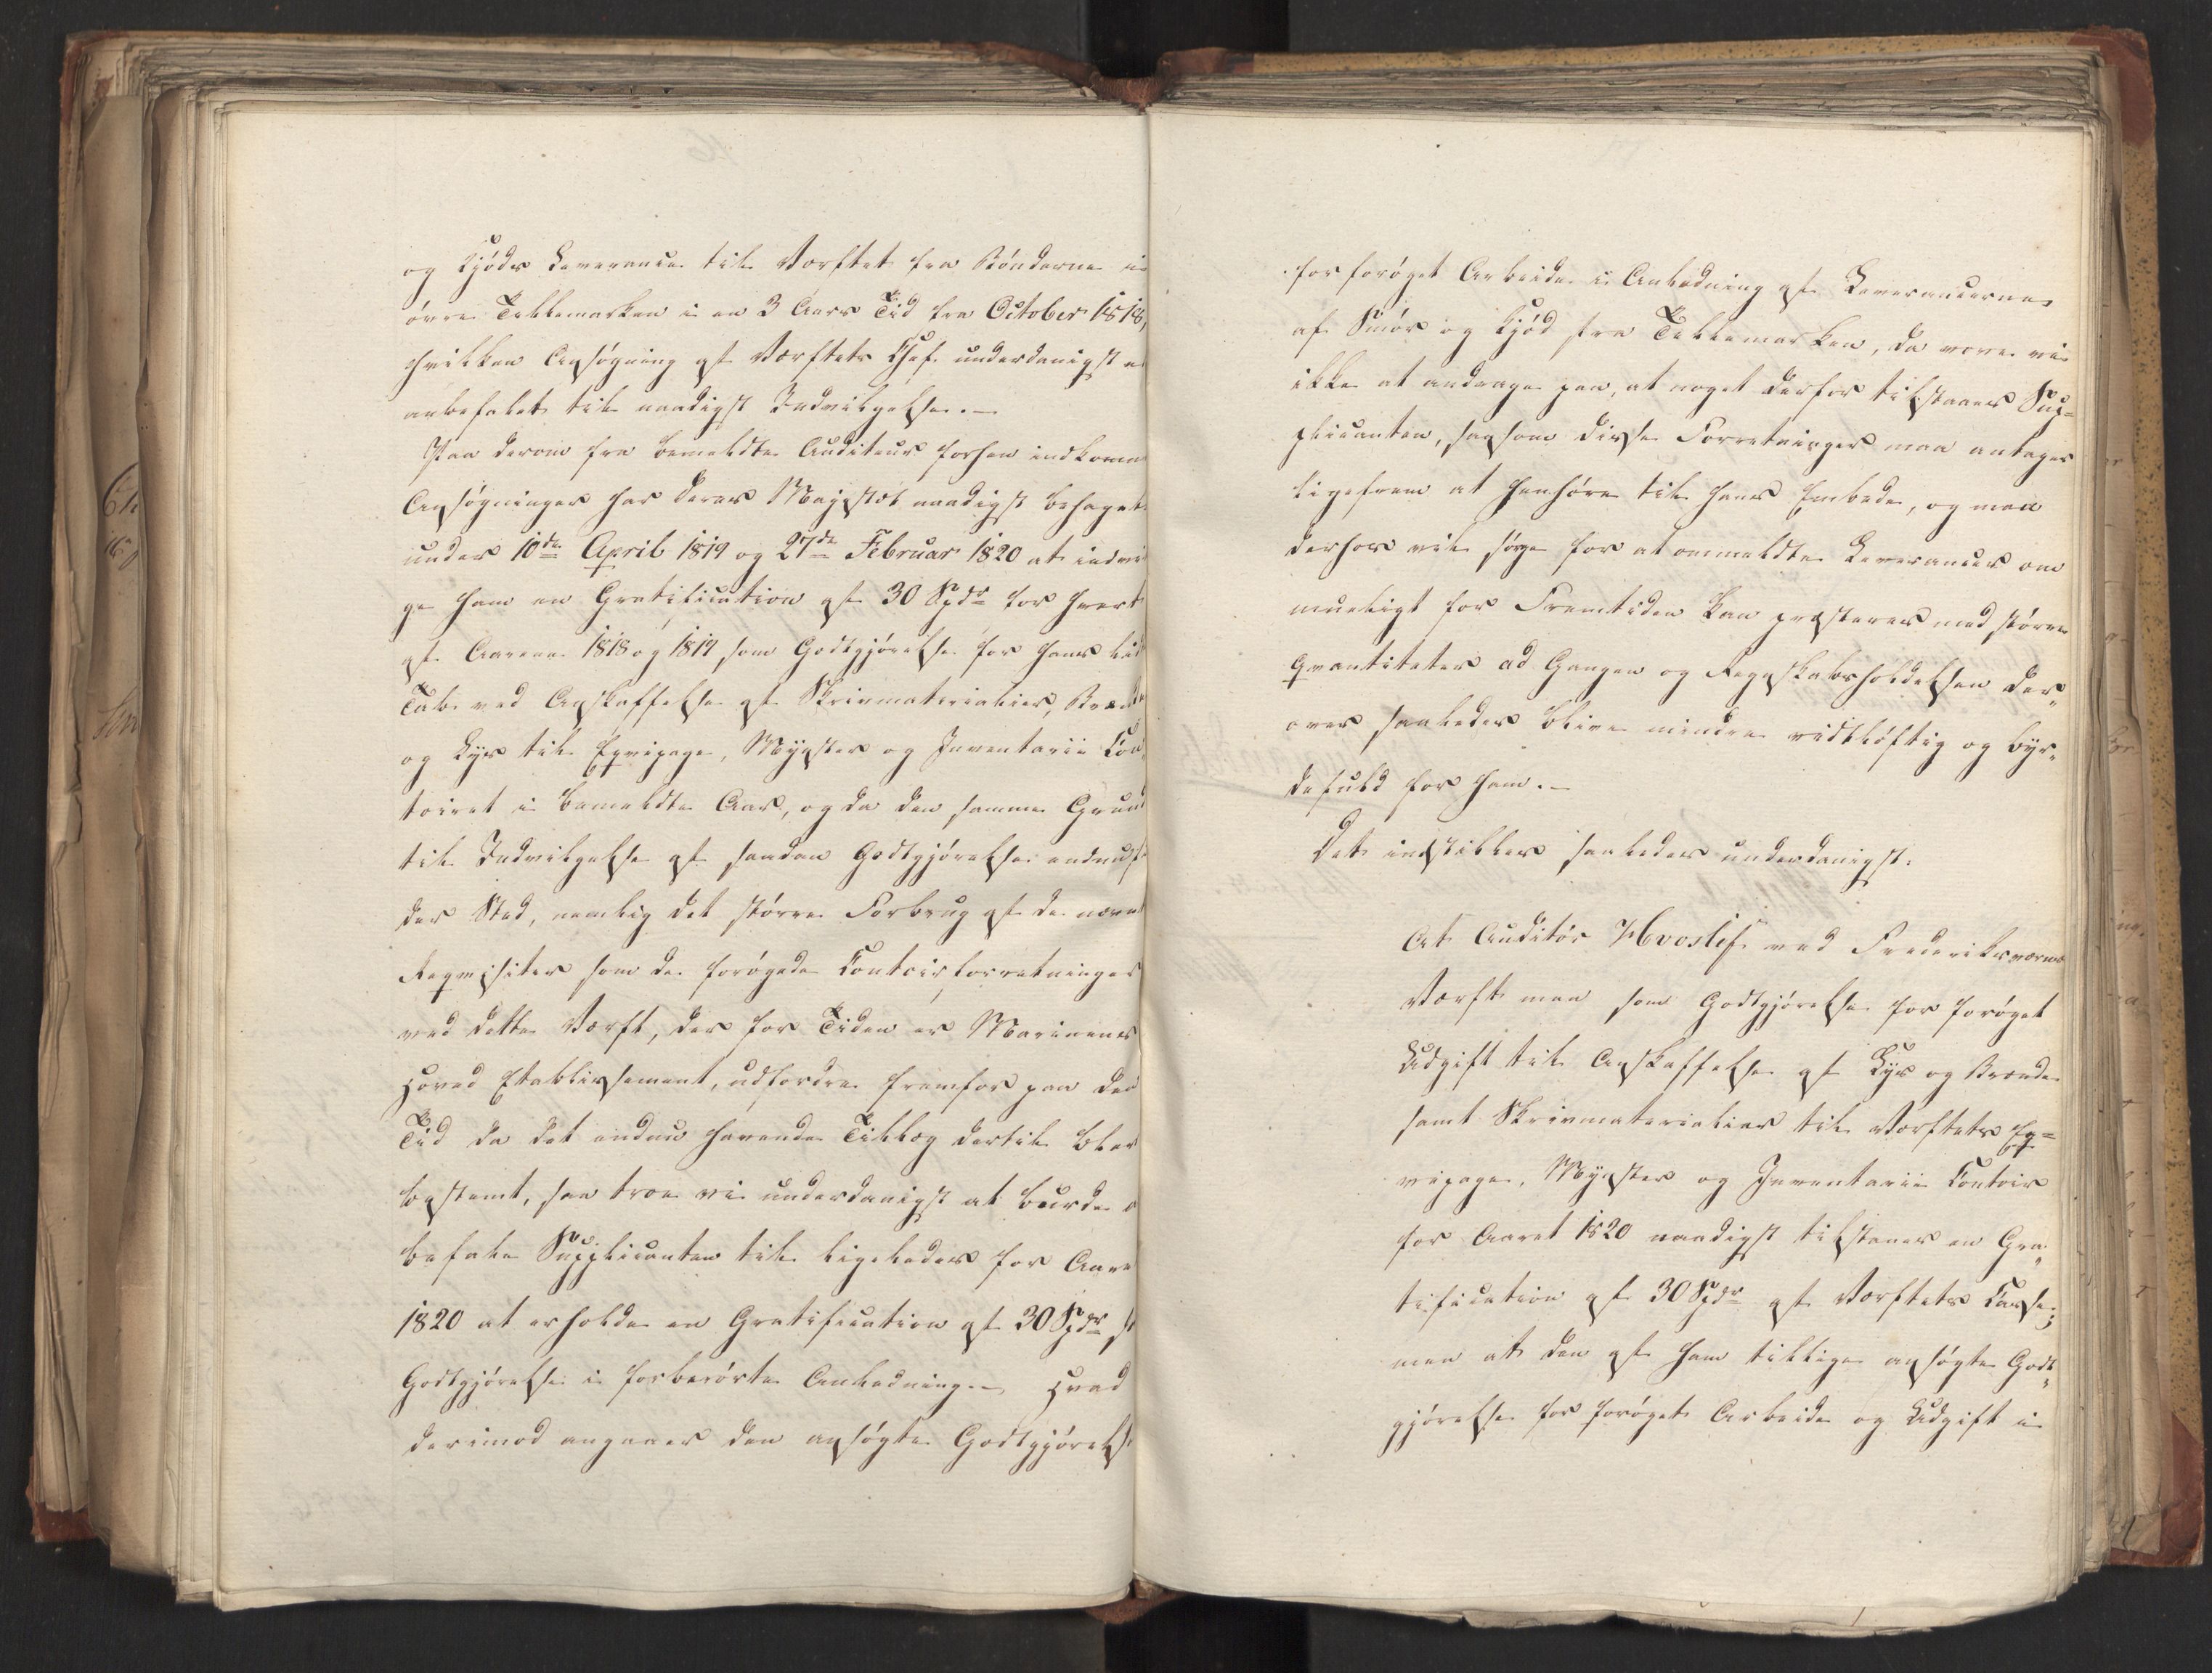 og Kjöds Leverance til Værftet fra Bönderne i
övre Tellemarken i en 3 Aars Tid fra October 1818,
hvilken Ansögning af Værftets Chef underdanigst er
anbefalet til naadigst Indvilgelse.–
Paa derom fra bemeldte Auditeur forhen indkomne
Ansögninger har Deres Majestæt naadigst behaget
under 10de April 1819 og 27de Februar 1820 at indvil
ge ham en Gratification af 30 Spdr for hvert
af Aarene 1818 og 1819 som Godtgjörelse for hans lid
Tab ved Anskaffelse af Skrivmaterialier, Brænde
og Lys til Eqvipage, Mynster og Inventarii Con
toiret i bemeldte Aar, og da den samme Grund
til Indvilgelse af saadan Godtgjörelse endnu f
der Sted, nemlig det större Forbrug af de nævnte
Reqvisiter som de forögede Contoirforretninger
ved dette Værft, der for Tiden er Marinens
Hoved Etablissement, udfordre fremfor paa den
Tid da det endnu havende Tillæg dertil blev
bestemt, saa troe vi underdanigst at burde a
befale Supplicanten til ligeledes for Aaret
1820 at erholde en Gratification af 30 Spdr s
Godtgjörelse i forberörte Anledning.– Hvad
derimod angaaer den ansögte Godtgjörelse
for foröget Arbeide i Anledning af Leverancerne
af Smör og Kjöd fra Tellemarken, da vove vi
ikke at andrage paa, at noget derfor tilstaaes Sup=
plicanten, saasom disse Forretninger maa antages
ligefrem at henhöre til hans Embede, og man
derhos vil sörge for at ommeldte Leverancer om
mueligt for Fremtiden kan præsteres med större
Qvantiteter ad Gangen og Regnskabsholdelsen der„
over saaledes blive mindre vidtlöftig og byr„
defuld for ham.–
Det indstilles saaledes underdanigst:
At Auditör Hvoslef ved Frederiksværns
Værft maa som Godtgjörelse for foröget
Udgift til Anskaffelse af Lys og Brænde
samt Skrivmaterialier til Værftets Eq=
vipage, Mynster og Inventarii Contoir
for Aaret 1820 naadigst tilstaaes en Gra„
tification af 30 Spdr af Værftets Casse;
men at den af ham tillige ansögte Godt„
gjörelse for foröget Arbeide og Udgift i